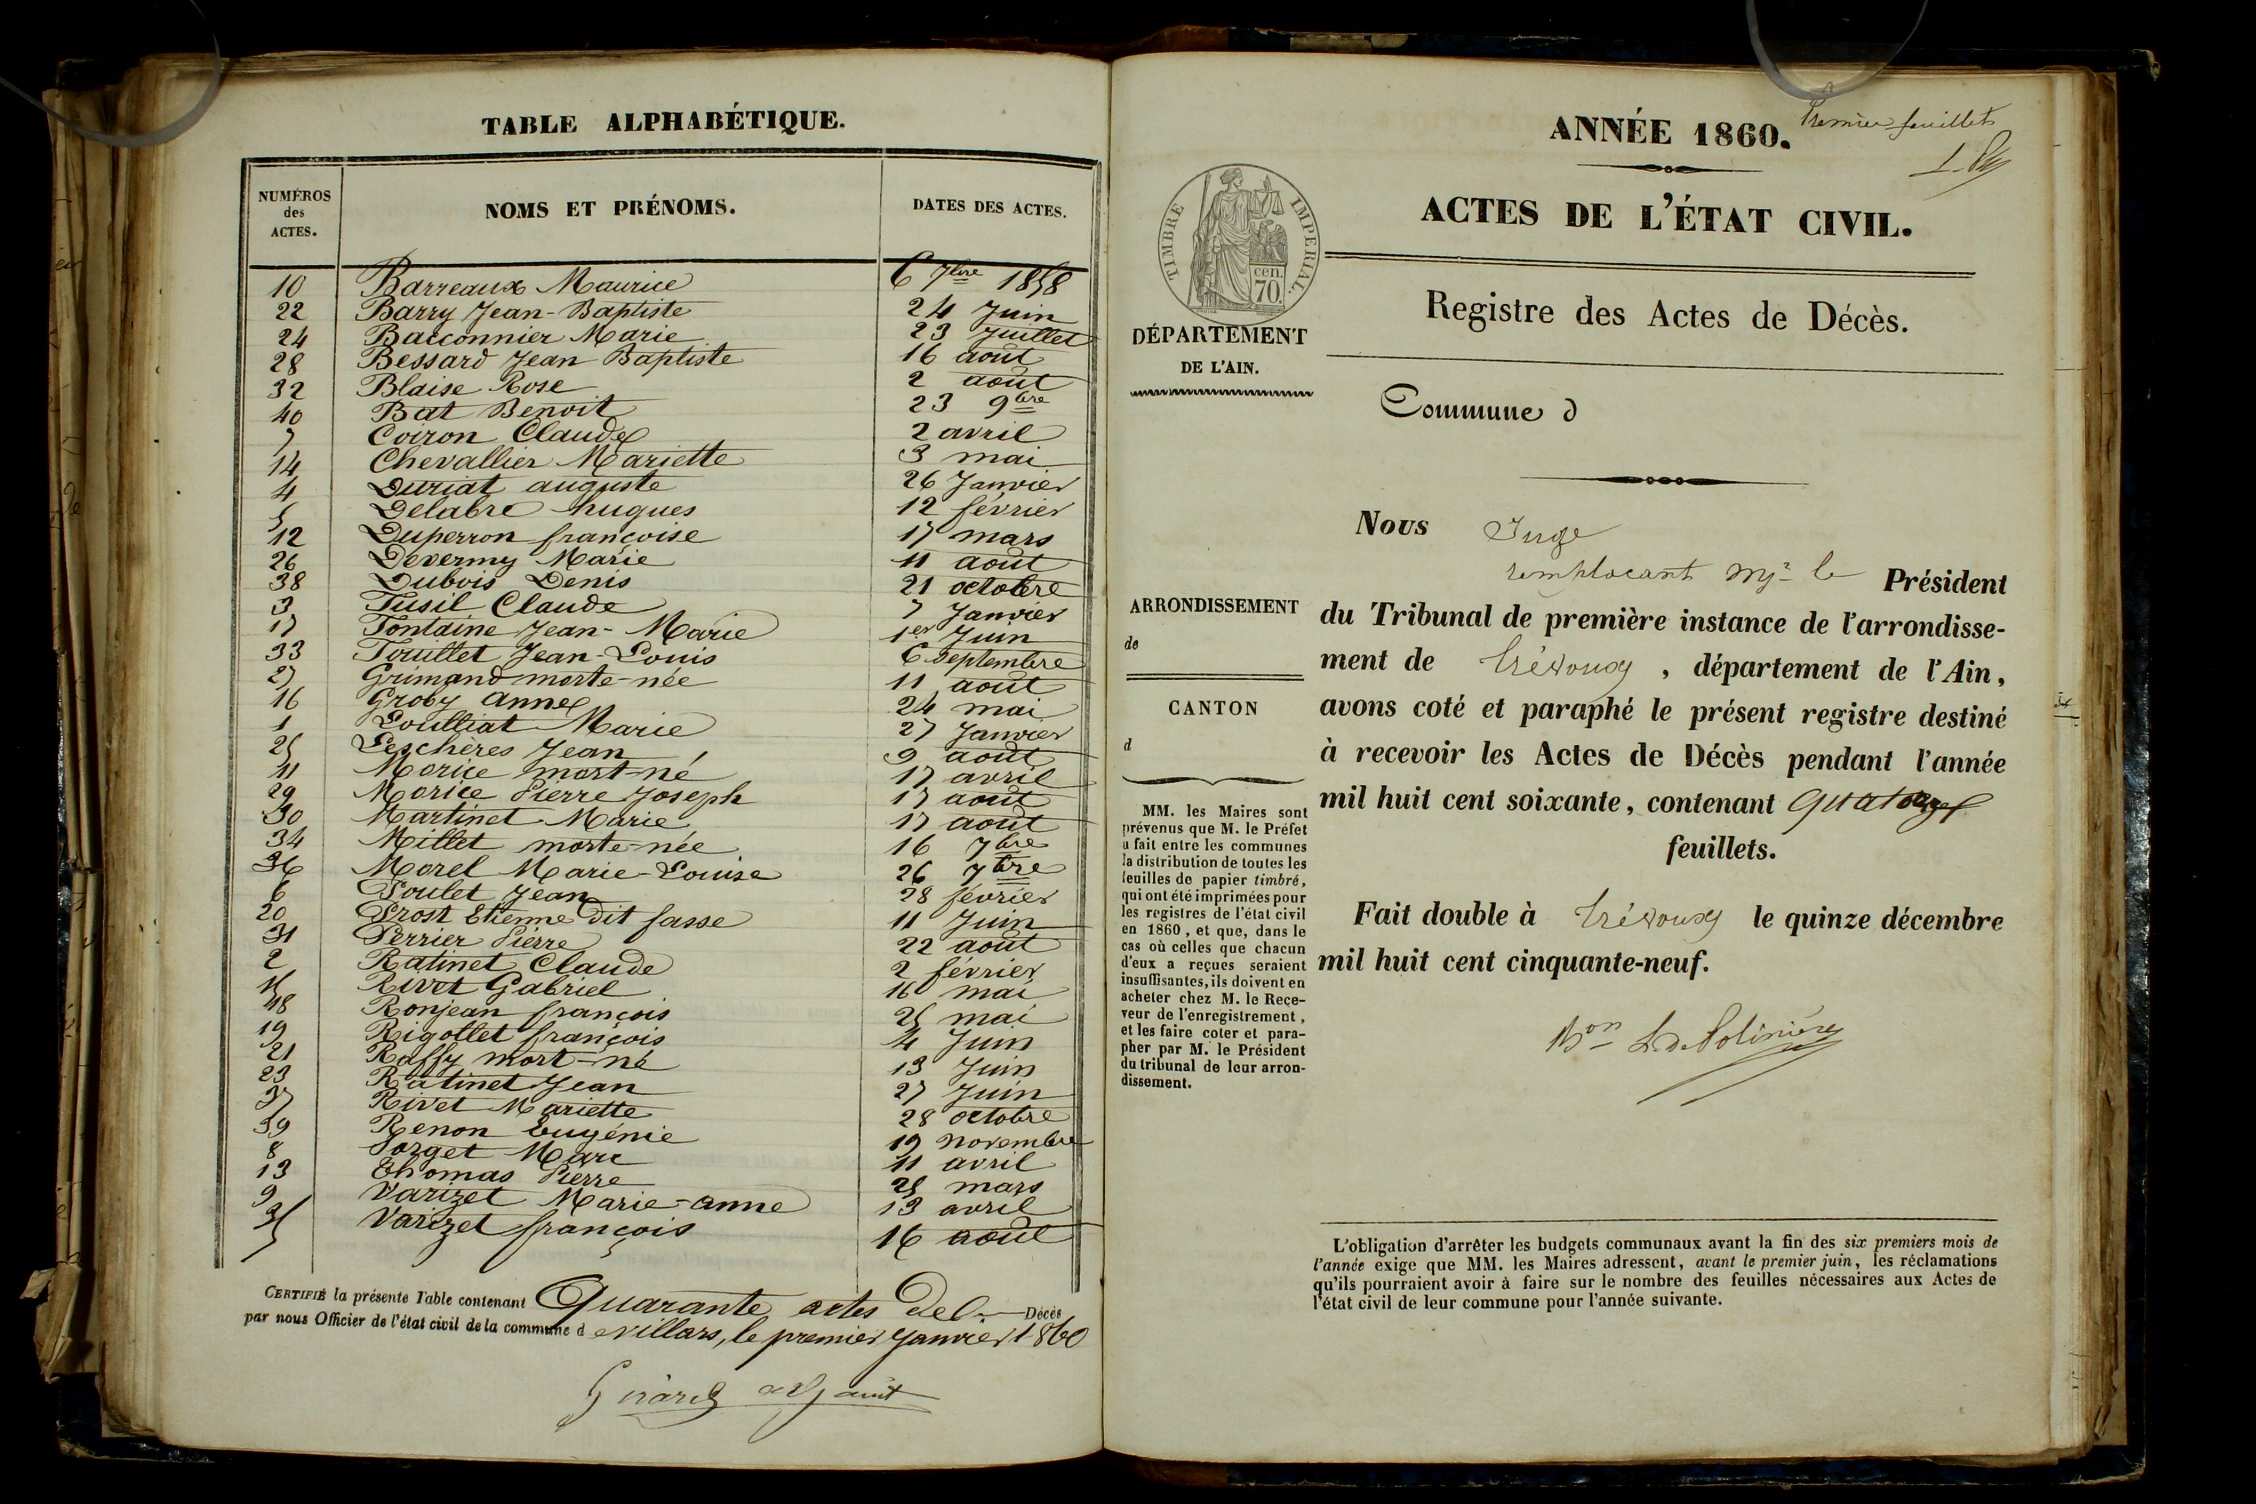 TABLE ALPHABÉTIQUE.
NUMÉROS des ACTES. NOMS ET PRÉNOMS. DATES DES ACTES.
10 Barreaux Maurice 6 7bre 1858
22 Barry Jean-Baptiste 24 Juin
24 Bacconnier Marie 23 Juillet
28 Bessard Jean Baptiste 16 août
32 Blaise Rose 2 août
40 Bat Benoit 23 9bre
7 Coiron Claude 2 avril
14 Chevallier Mariette 3 mai
4 Duriat auguste 26 Janvier
5 Delabre hugues 12 février
12 Duperron françoise 17 mars
26 Devermy Marie 11 août
38 Dubois Denis 21 octobre
3 Fusil Claude 7 Janvier
17 Fontaine Jean-Marie 1er Juin
33 Foullet Jean-Louis 6 septembre
27 Grimand morte-née 11 août
16 Groby anne 24 mai
1 Loulliat Marie 27 Janvier
25 Leschères Jean 9 août
11 Morice mort-né 17 avril
29 Morice Pierre Joseph 17 août
30 Martinet Marie 17 août
34 Millet morte-née 16 7bre
36 Morel Marie-Louise 26 7bre
6 Poulet Jean 28 février
20 Prost Etienne dit fasse 11 Juin
31 Perrier Pierre 22 août
2 Ratinet Claude 2 février
15 Rivet Gabriel 16 mai
18 Ronjean françois 25 mai
19 Rigollet françois 4 Juin
21 Raffy mort-né 13 Juin
23 Ratinet Jean 27 Juin
37 Rivet Mariette 28 octobre
39 Renon Eugénie 19 novembre
8 Sorget Marc 11 avril
13 Thomas Pierre 25 mars
9 Varizet Marie-anne 13 avril
35 Varizet françois 16 août
CERTIFIÉ la présente Table contenant Quarante actes de Décès
par nous Officier de l'état civil de la commune d evillars, le premier Janvier 1860
Girard adjoint
Premier feuillet
ANNÉE 1860.
ACTES DE L'ÉTAT CIVIL.
TIMBRE IMPERIAL.
cen.
70.
Registre des Actes de Décès.
DÉPARTEMENT
DE L'AIN.
Commune d
Nous Juge
remplacant Mr le Président
ARRONDISSEMENT
de
du Tribunal de première instance de l'arrondisse-
ment de Trévoux, département de l'Ain,
avons coté et paraphé le présent registre destiné
à recevoir les Actes de Décès pendant l'année
mil huit cent soixante, contenant quatorze
feuillets.
CANTON
d
MM. les Maires sont
prévenus que M. le Préfet
a fait entre les communes
la distribution de toutes les
feuilles de papier timbré,
qui ont été imprimées pour
les registres de l'état civil
en 1860, et que, dans le
cas où celles que chacun
d'eux a reçues seraient
insuffisantes, ils doivent en
acheter chez M. le Rece-
veur de l'enregistrement,
et les faire coter et para-
pher par M. le Président
du tribunal de leur arron-
dissement.
Fait double à Trévoux le quinze décembre
mil huit cent cinquante-neuf.
Bon L de Polinière
L'obligation d'arrêter les budgets communaux avant la fin des six premiers mois de
l'année exige que MM. les Maires adressent, avant le premier juin, les réclamations
qu'ils pourraient avoir à faire sur le nombre des feuilles nécessaires aux Actes de
l'état civil de leur commune pour l'année suivante.